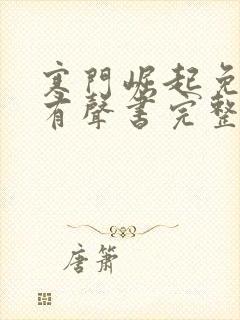 寒門崛起免
有聲書完整
唐簫